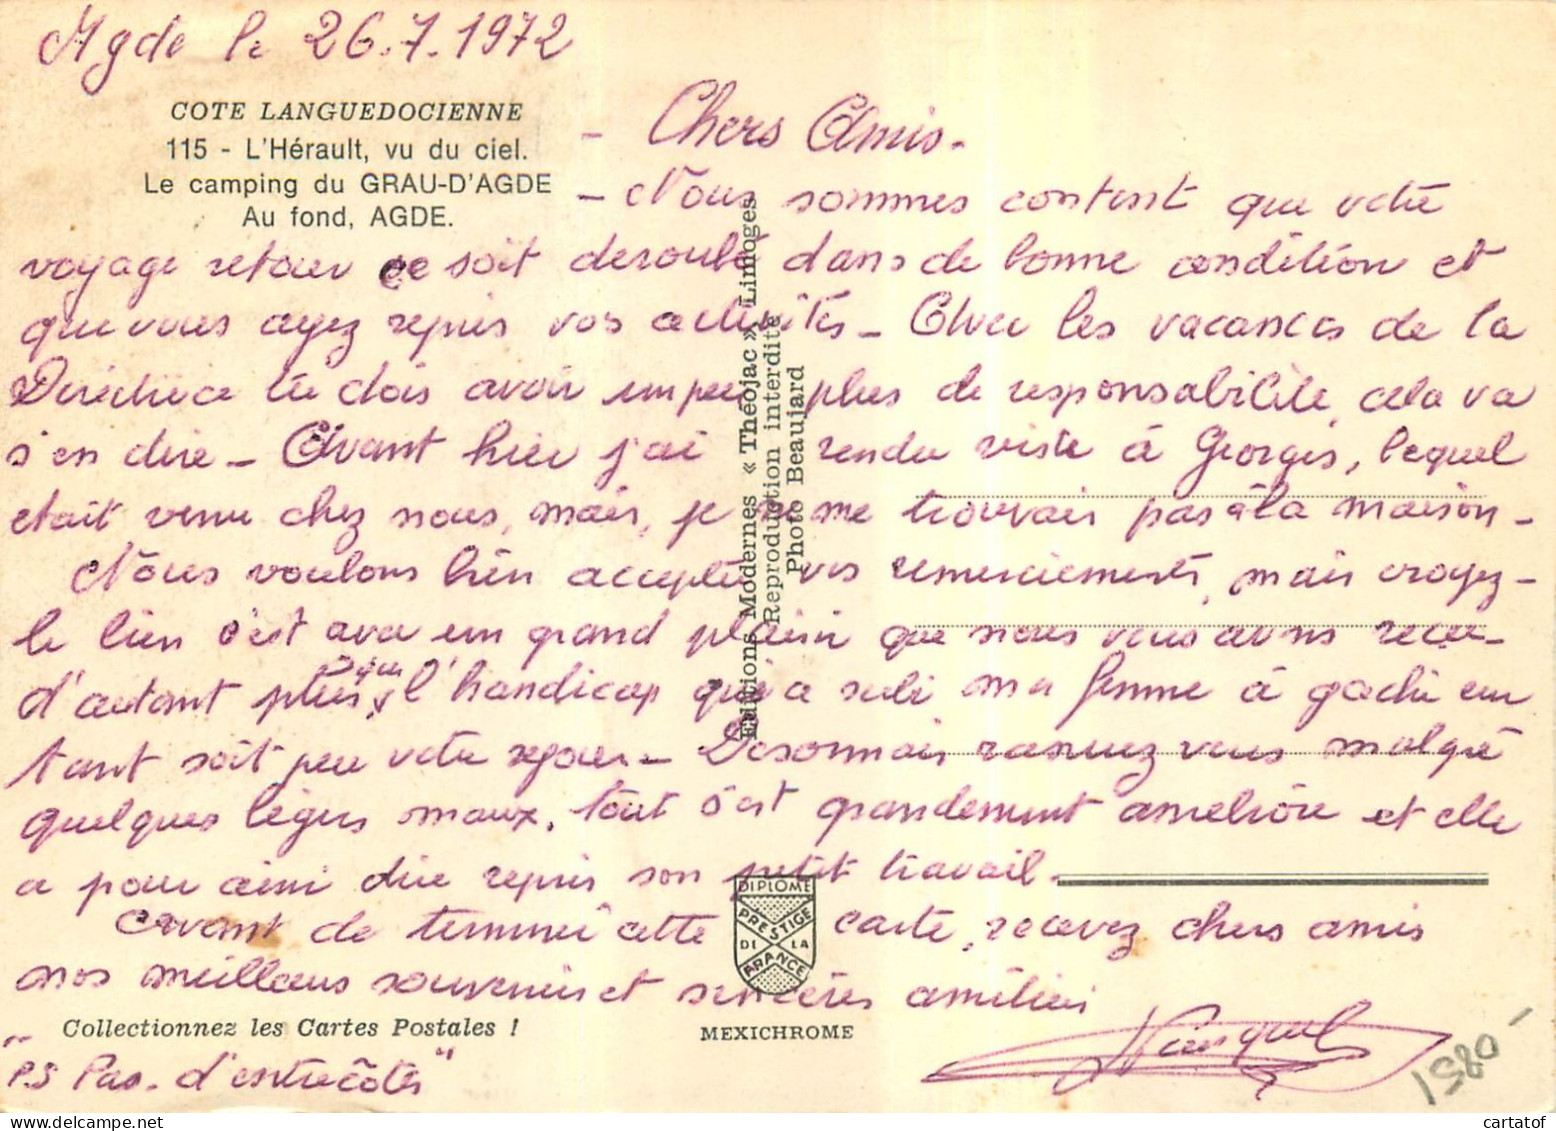 Agde le 26.7.1972
COTE LANGUEDOCIENNE
115 - L'Hérault, vu du ciel.
Le camping du GRAU-D'AGDE
Au fond, AGDE.
- Chers Amis.
- Nous sommes content que votre
voyage retour ce soit deroulé dans de bonne condition et
que vous ayez repris vos activités - Avec les vacances de la
Directrice tu dois avoir un peu plus de responsabilité, cela va
s'en dire - Avant hier j'ai rendu viste à Georges, lequel
etait venu chez nous, mais, je ne me trouvais pas à la maison -
Nous voulons bien accepter vos remerciements, mais croyez-
le bien c'est avec un grand plaisir que nous vous avons recu -
d'autant plus que l'handicap qu'a subi ma femme à gaché un
tant soit peu votre sejour - Desormais rassurez vous malgré
quelques légers maux, tout s'est grandement amélioré et elle
a pour ainsi dire repris son petit travail.
avant de terminer cette carte, recevez chers amis
nos meilleurs souvenirs et sincères amitiés
Collectionnez les Cartes Postales !
"P.S Pas. d'entrecôtes"
Editions Modernes « Théojac » Limoges
Reproduction interdite
Photo Beaujard
DIPLOME
PRESTIGE
DE LA
FRANCE
MEXICHROME
1980
cartatof